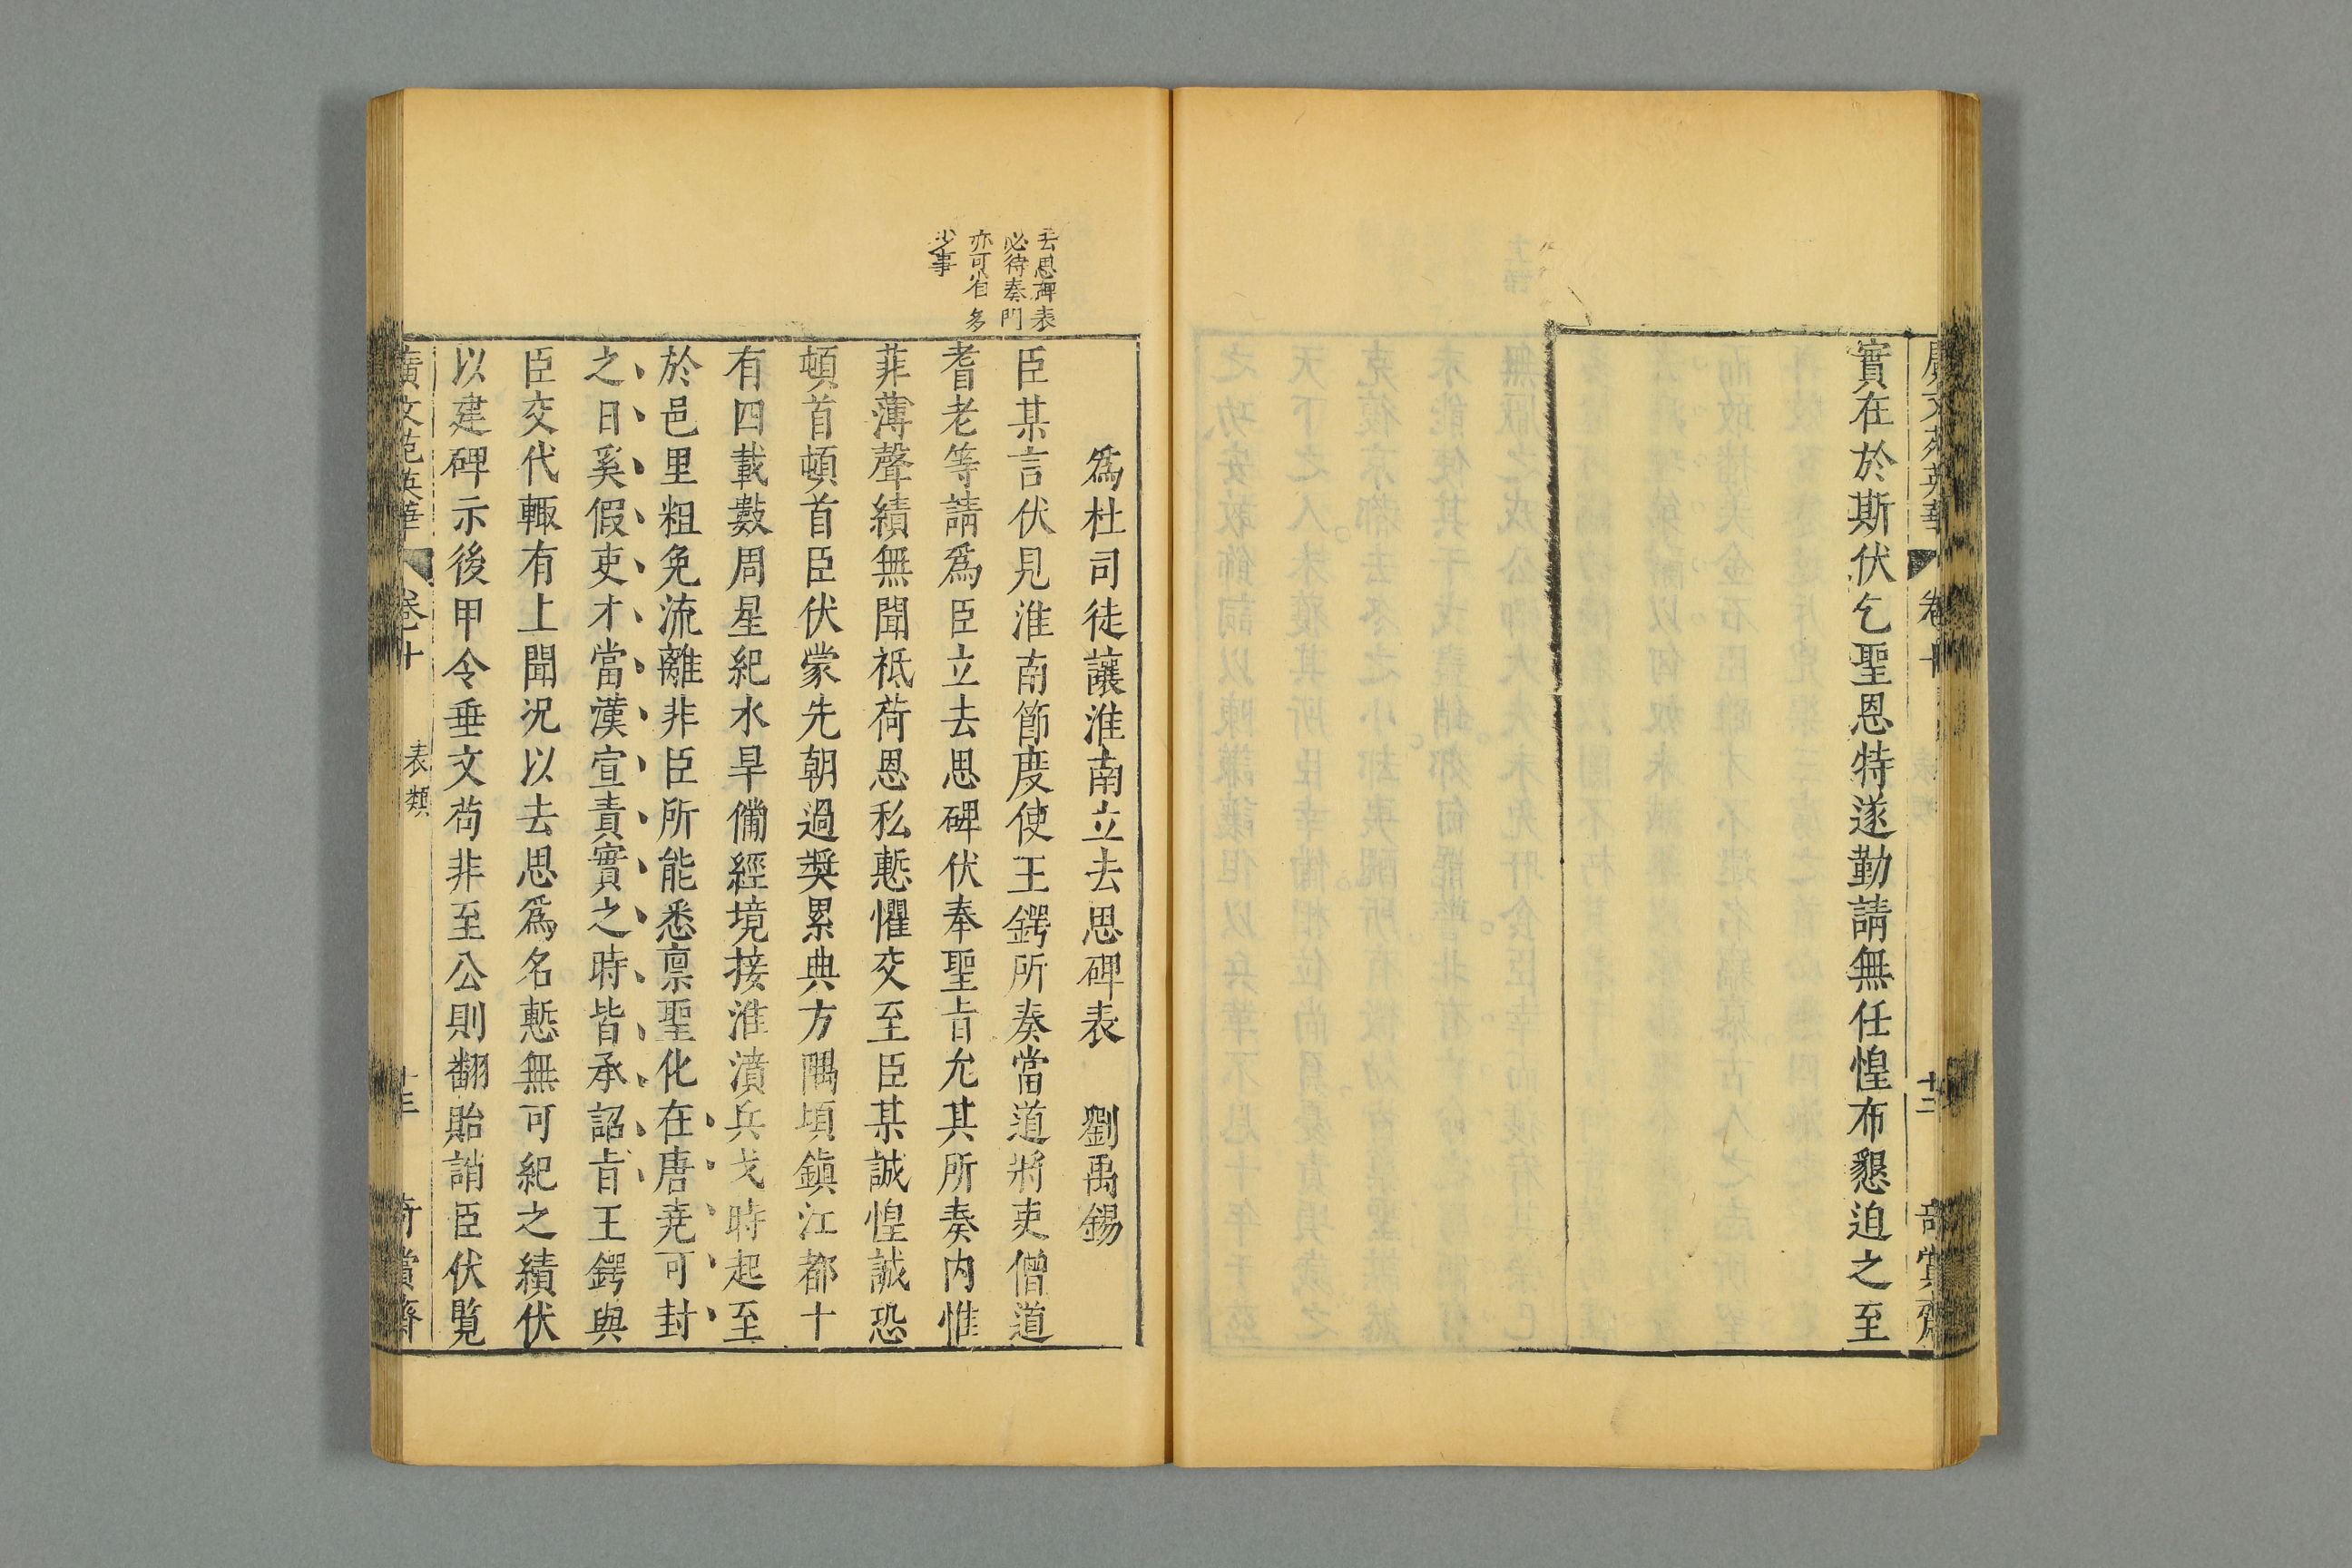 實在於斯伏乞聖恩特遂勤請無任惶布懇迫之至
去思碑表
必待奏門
亦可省多
少事
爲杜司徒讓淮南立去思碑表 劉禹錫
臣某言伏見淮南節度使王鍔所奏當道將吏僧道
耆老等請爲臣立去思碑伏奉聖旨允其所奏内惟
菲薄聲績無聞祗荷恩私慙懼交至臣某誠惶誠恐
頓首頓首臣伏蒙先朝過奬累典方隅頃鎭江都十
有四載數周星紀水旱備經境接淮濆兵戈時起至
於邑里粗免流離非臣所能悉禀聖化在唐堯可封
之日奚假吏才當漢宣責實之時皆承詔旨王鍔與
臣交代輙有上聞況以去思爲名慙無可紀之績伏
以建碑示後甲令垂文苟非至公則翻貽誚臣伏覧
廣文苑英華 卷十 表類 奇賞齋